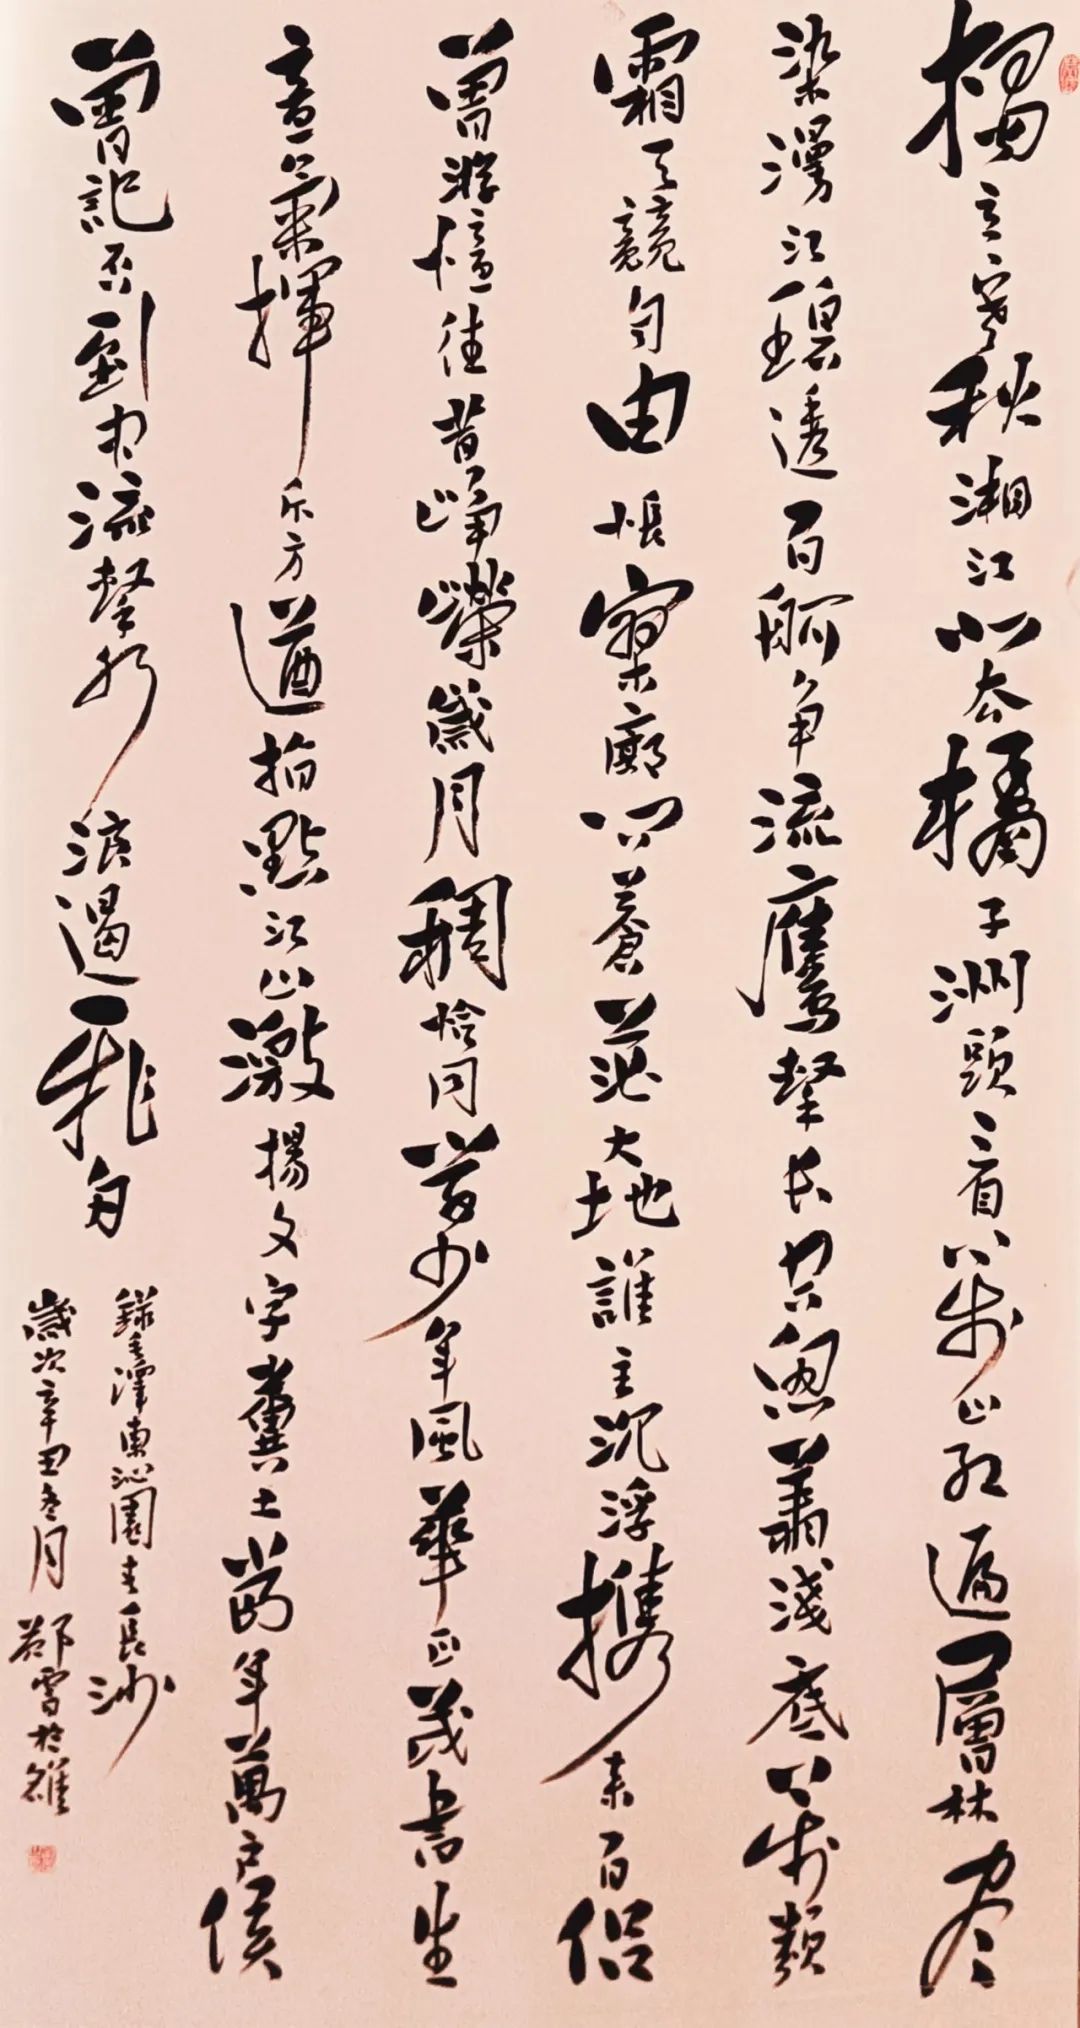 獨立寒秋湘江北去橘子洲頭看萬山紅遍層林尽
染漫江碧透百舸争流鷹擊長空魚翔淺底萬類
霜天競自由悵寥廓問蒼茫大地誰主沉浮攜来百侣
曾游憶往昔崢嶸歲月稠恰同學少年風華正茂書生
意氣揮斥方遒指點江山激揚文字糞土當年萬户侯
曾記否到中流擊水浪遏飛舟
錄毛澤東沁園春長沙
歲次辛丑冬月 鄭雪